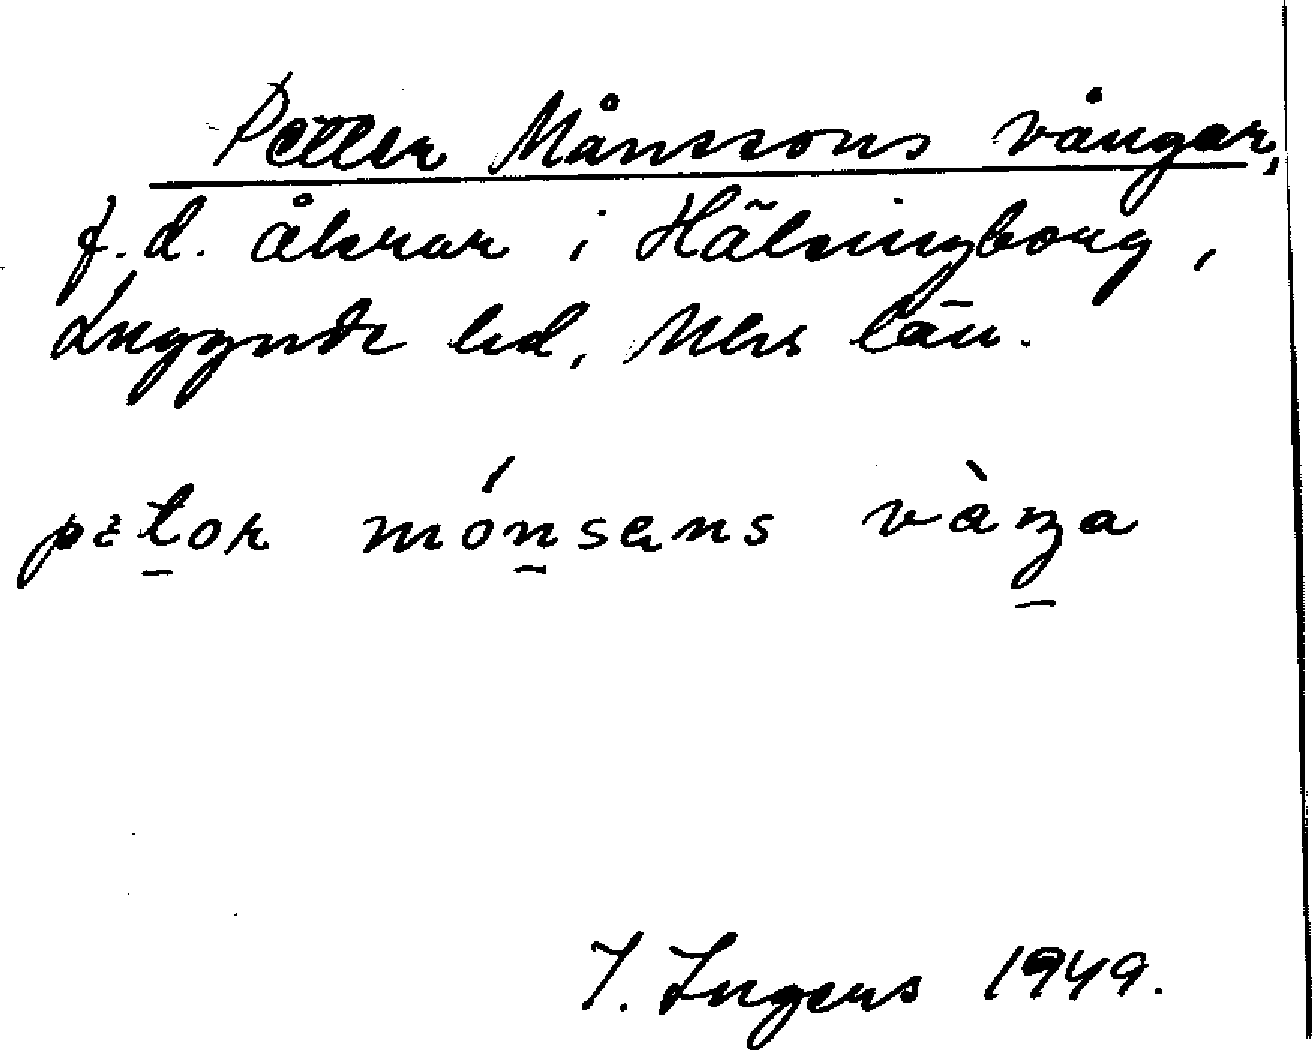 Petter Månssons vångar,
f.d. åkrar i Hälsingborg,
Luggude hd, Mlhs län.
pætor mónsens vàŋa
I. Ingers 1949.